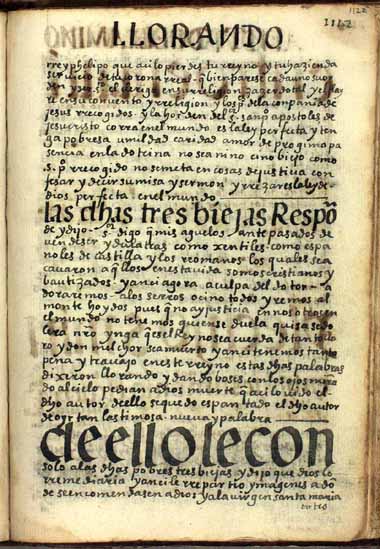 1122
1112
LLORANDO
rrey phelipo que aci lo pierdes tu rreyno y tu hazienda
seruicio de tu corona rreal q̃ bien parese cada uno su or
den
re en su conuento y rreligion y los p.es de la conpania de
jesus rrecogidos y la horden del s. san p.o apostoles de
jesucristo corra el mundo es la ley perfecta y ten
ga pobresa umildad caridad amor de progimo pa
sencia en la dotrina no sea
p.e rrecogido no se meta en cosas de justicia con
fesar y decir su misa y sermon y rrezar es la ley de
dios perfecta en el mundo
las dhas tres biejas Respõ
de y dijo s. digo q̃ mis aguelos antepasados de
uen de ser ydulatras como xentiles como espa
ñoles de castilla y los rromanos los quales se a
cauaron aq̃llos en esta uida somos cristianos y
bautizados y anci agora a culpa del dotor a
doraremos a los serros o cino todos yremos al
monte hoydos pues q̃ no ay justicia en nosotros en
el mundo no tenemos quien se duela quisa se do
lera nr̃o ynga q̃ es el rrey no se acuerda de tan todo
y anci tenemos tanto
pena y trauajo en este rreyno estas dhas palabras
dixeron llorando y dando boses con los ojos mira
do al cielo pedian a dios muerte q̃ aci lo uido el
dho autor de ello se quedo espantado el dho autor
de oyr tan lastimosa nueua y palabra
de ello le con
solo a las dhas pobres tres biejas y dijo que dios lo
rremediaria y anci le rrepartio ymagenes a do
de se encomendasen a dios y a la uirgen santa maria